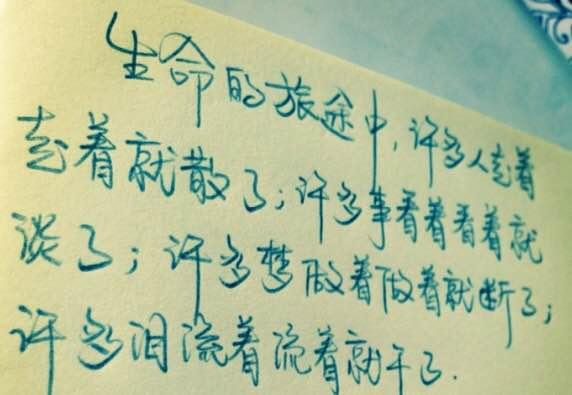 生命的旅途中,许多人走着
走着就散了;许多事看着看着就
淡了;许多梦做着做着就断了;
许多泪流着流着就干了.